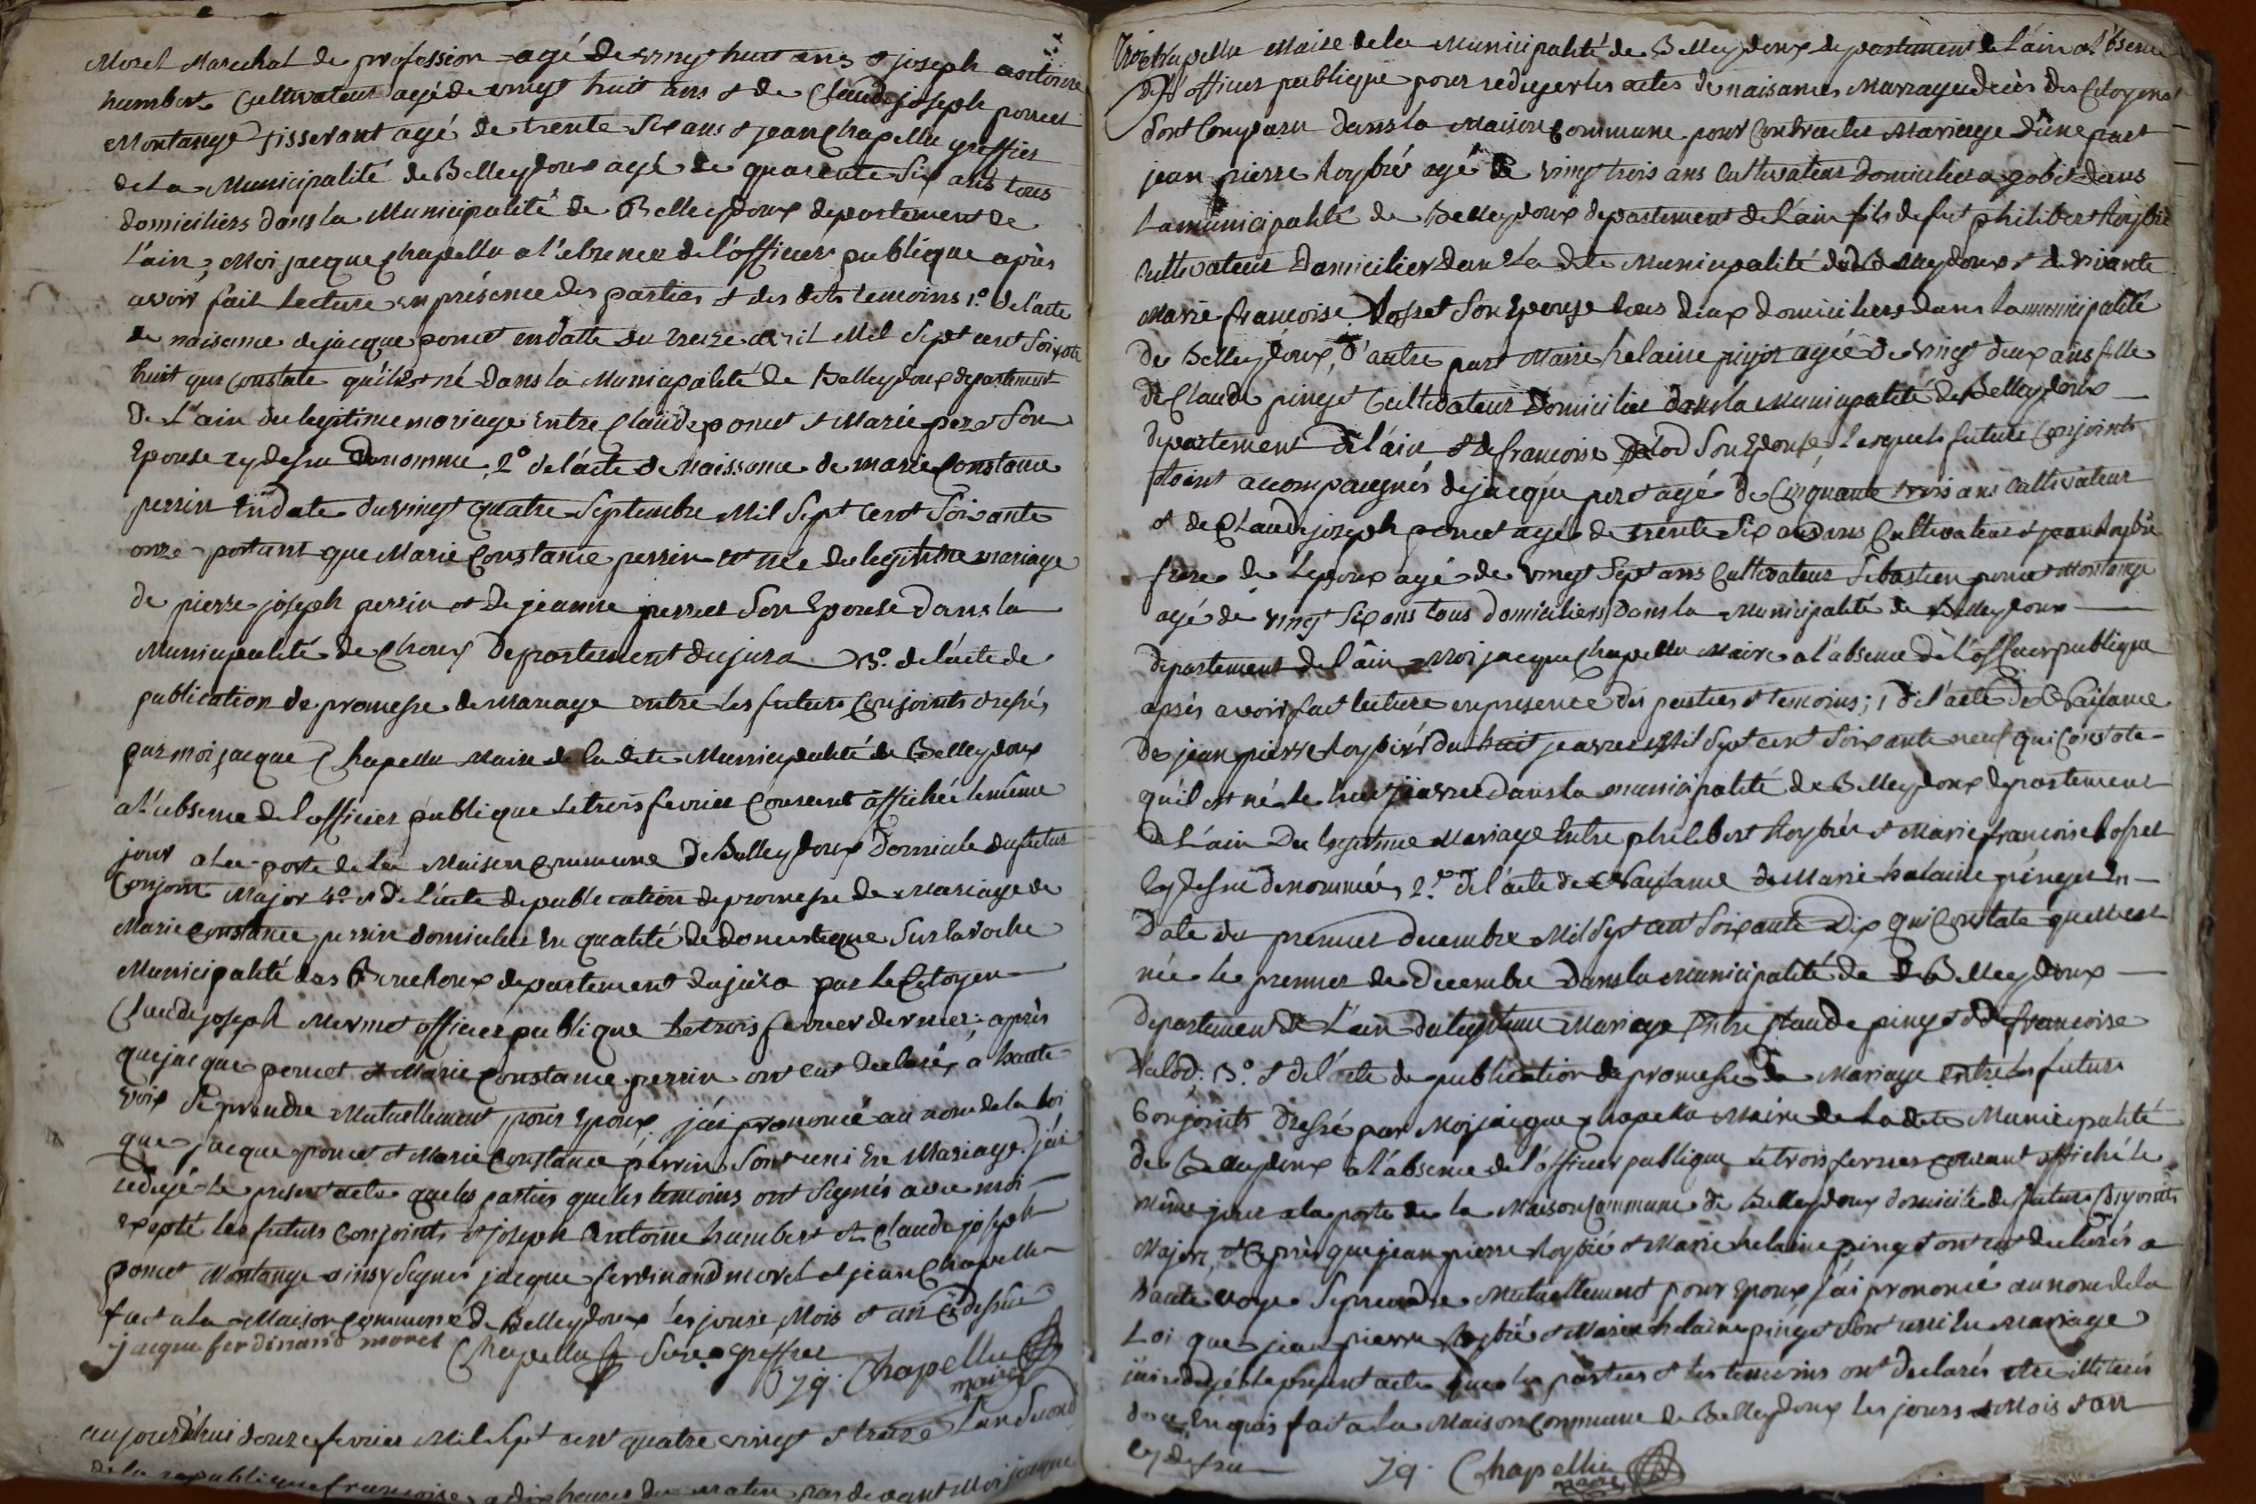 Morel Marechal de profession agé de vingt huit ans & joseph antoinne
humbert Cultivateur agé de vingt huit ans & de Claude joseph poncet
Montange tisserant agé de trente six ans & jean Chapellu greffier
de la Municipalité de Belleydoux agé de quarente six ans tous
domiciliers dans la Municipalité de Belleydoux departement de
l'ain, Moi jacque Chapellu a l'absence de l'officier publique après
avoir fait lecture en présence des parties & des dits temoins 1.° de l'acte
de naisance de jacque poncet en datte du treize avril Mil Sept cent soixante
huit qui constate qu'il est né dans la Municipalité de Belleydoux departement
de l'ain du legitime mariage entre Claude poncet & Marie peret son
Epouse cy dessu denommé, 2° de l'acte de naissance de marie Constance
perrin en date du vingt quatre Septembre Mil Sept Cent Soixante
onze portant que Marie Constance perrin est née du legitime mariage
de pierre joseph perrin & de jeanne perret son Epouse dans la
Municipalité de Choux Departement du jura 3.° de l'acte de
publication de promesse de mariage entre les futurs conjoints dressé,
par moi jacque Chapellu Maire de la dite Municipalité de Belleydoux
a l'absence de l'officier publique le trois fevrier Courant affichée le même
jour a la porte de la Maison commune de Belleydoux Domicile du futur
Conjoint Major 4.° & de l'acte de publication de promesse de Mariage de
Marie Constance perrin domiciliée en qualité de domestique Sur la roche
Municipalité des Bouchoux departement du jura par le Citoyen
Claude joseph Mermet officier publique le trois fevrier dernier après
que jacque poncet & Marie Constance perrin ont eut declaré, à haute
voix se prendre Mutuellement pour Epoux j'ai prononcé au nom de la loi
que jacque poncet & Marie Constance perrin sont uni en Mariage. j'ai
redigé le present acte que les parties que les temoins ont signés avec moi
excepté les futurs conjoints & joseph antoine humbert & Claude joseph
poncet Montange ainsy signés jacque ferdinand morel et jean Chapellu
fait a la Maison commune de Belleydoux les jours Mois & an cy dessu
jacque ferdinand morel Chapellu greffier
79. Chapellu
maire
aujourd'hui douze fevrier Mil Sept cent quatre vingt & treize l'an Second
de la republique francoise, a dix heures du matin par devant Moi jacque
Chapellu Maire de la Municipalité de Belleydoux departement de l'ain a l'absence
de l'officier publique pour rediger les actes de naisances Marrage deces des Citoyens
sont Comparu dans la Maison commune pour Contracter Mariage d'une part
jean pierre hoybié agé de vingt trois ans Cultivateur domicilier a gobet dans
la municipalité de Belleydoux departement de l'ain fils de fut philibert hoybié
cultivateur Domicilier dans la dite Municipalité de Belleydoux & de vivante
Marie francoise Rosset son Epouse tous deux domiciliers dans la municipalité
de Belleydoux, d'autre part Marie helaine pinget agée de vingt deux ans fille
de Claude pinget Cultivateur Domicilier dans la Municipalité de Belleydoux
departement de l'ain & de francoise son Epouse, lesquels futurs Conjoints
etoint accompagnés de jacque peret agé de Cinquante trois ans Cultivateur
& de Claude joseph poncet agé de trente six ans Cultivateur & jean hoybié
frere de l'epoux agé de vingt Sept ans Cultivateur Sebastien poncet Montange
agé de vingt six ans tous domiciliers dans la Municipalité de Belleydoux
departement de l'ain Moi jacque Chapellu Maire a l'absence de l'officier publique
après avoir fait lecture en presence des parties & temoins; 1 de l'acte de Naisance
de jean pierre hoybié du huit janvier Mil Sept cent Soixante neuf qui Constate
qu'il est né le huit janvier dans la municipalité de Belleydoux departement
de l'ain Du legitime Mariage Entre philibert hoybié & Marie francoise Rosset
cy dessu denommée, 2.° de l'acte de Naisance de Marie helaine pinget En
Date du premier decembre Mil Sept cent soixante Dix qui Constate qu'elle est
née le premier de Decembre Dans la Municipalité de Belleydoux
departement de l'ain du legitime Mariage Entre Claude pinget & de francoise
3.° & de l'acte de publication de promesse de Mariage entre les futurs
Conjoints dressé par Moi jacque Chapellu Maire de la dite Municipalité
de Belleydoux a l'absence de l'officier publique le trois fevrier courant affichée le
même jour a la porte de la Maison Commune de Belleydoux domicile des futurs conjoints
Major, & après que jean pierre hoybié & Marie helaine pinget ont eut declarés a
haute voye Se prendre Mutuellement pour Epoux j'ai prononcé au nom de la
Loi que jean pierre hoybié & Marie helaine pinget sont uni en Mariage
j'ai redigé le present acte que les parties & les temoins ont declarés etre illiterés
de ce Enquis fait a la Maison commune de Belleydoux les jours Mois & an
cy dessu
79. Chapellu
maire